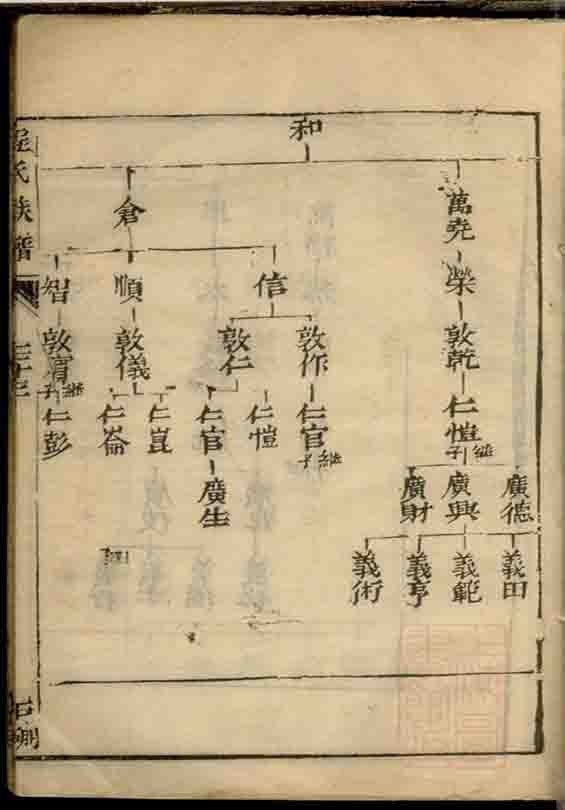 和
萬堯
榮
敦乾
仁愷
繼子
廣德
廣興
廣財
義田
義範
義亨
義術
倉
信
敦作
仁官
繼子
敦仁
仁愷
仁官
廣生
順
敦儀
仁崑
仁崙
智
敦
繼子
仁彭
氏族譜